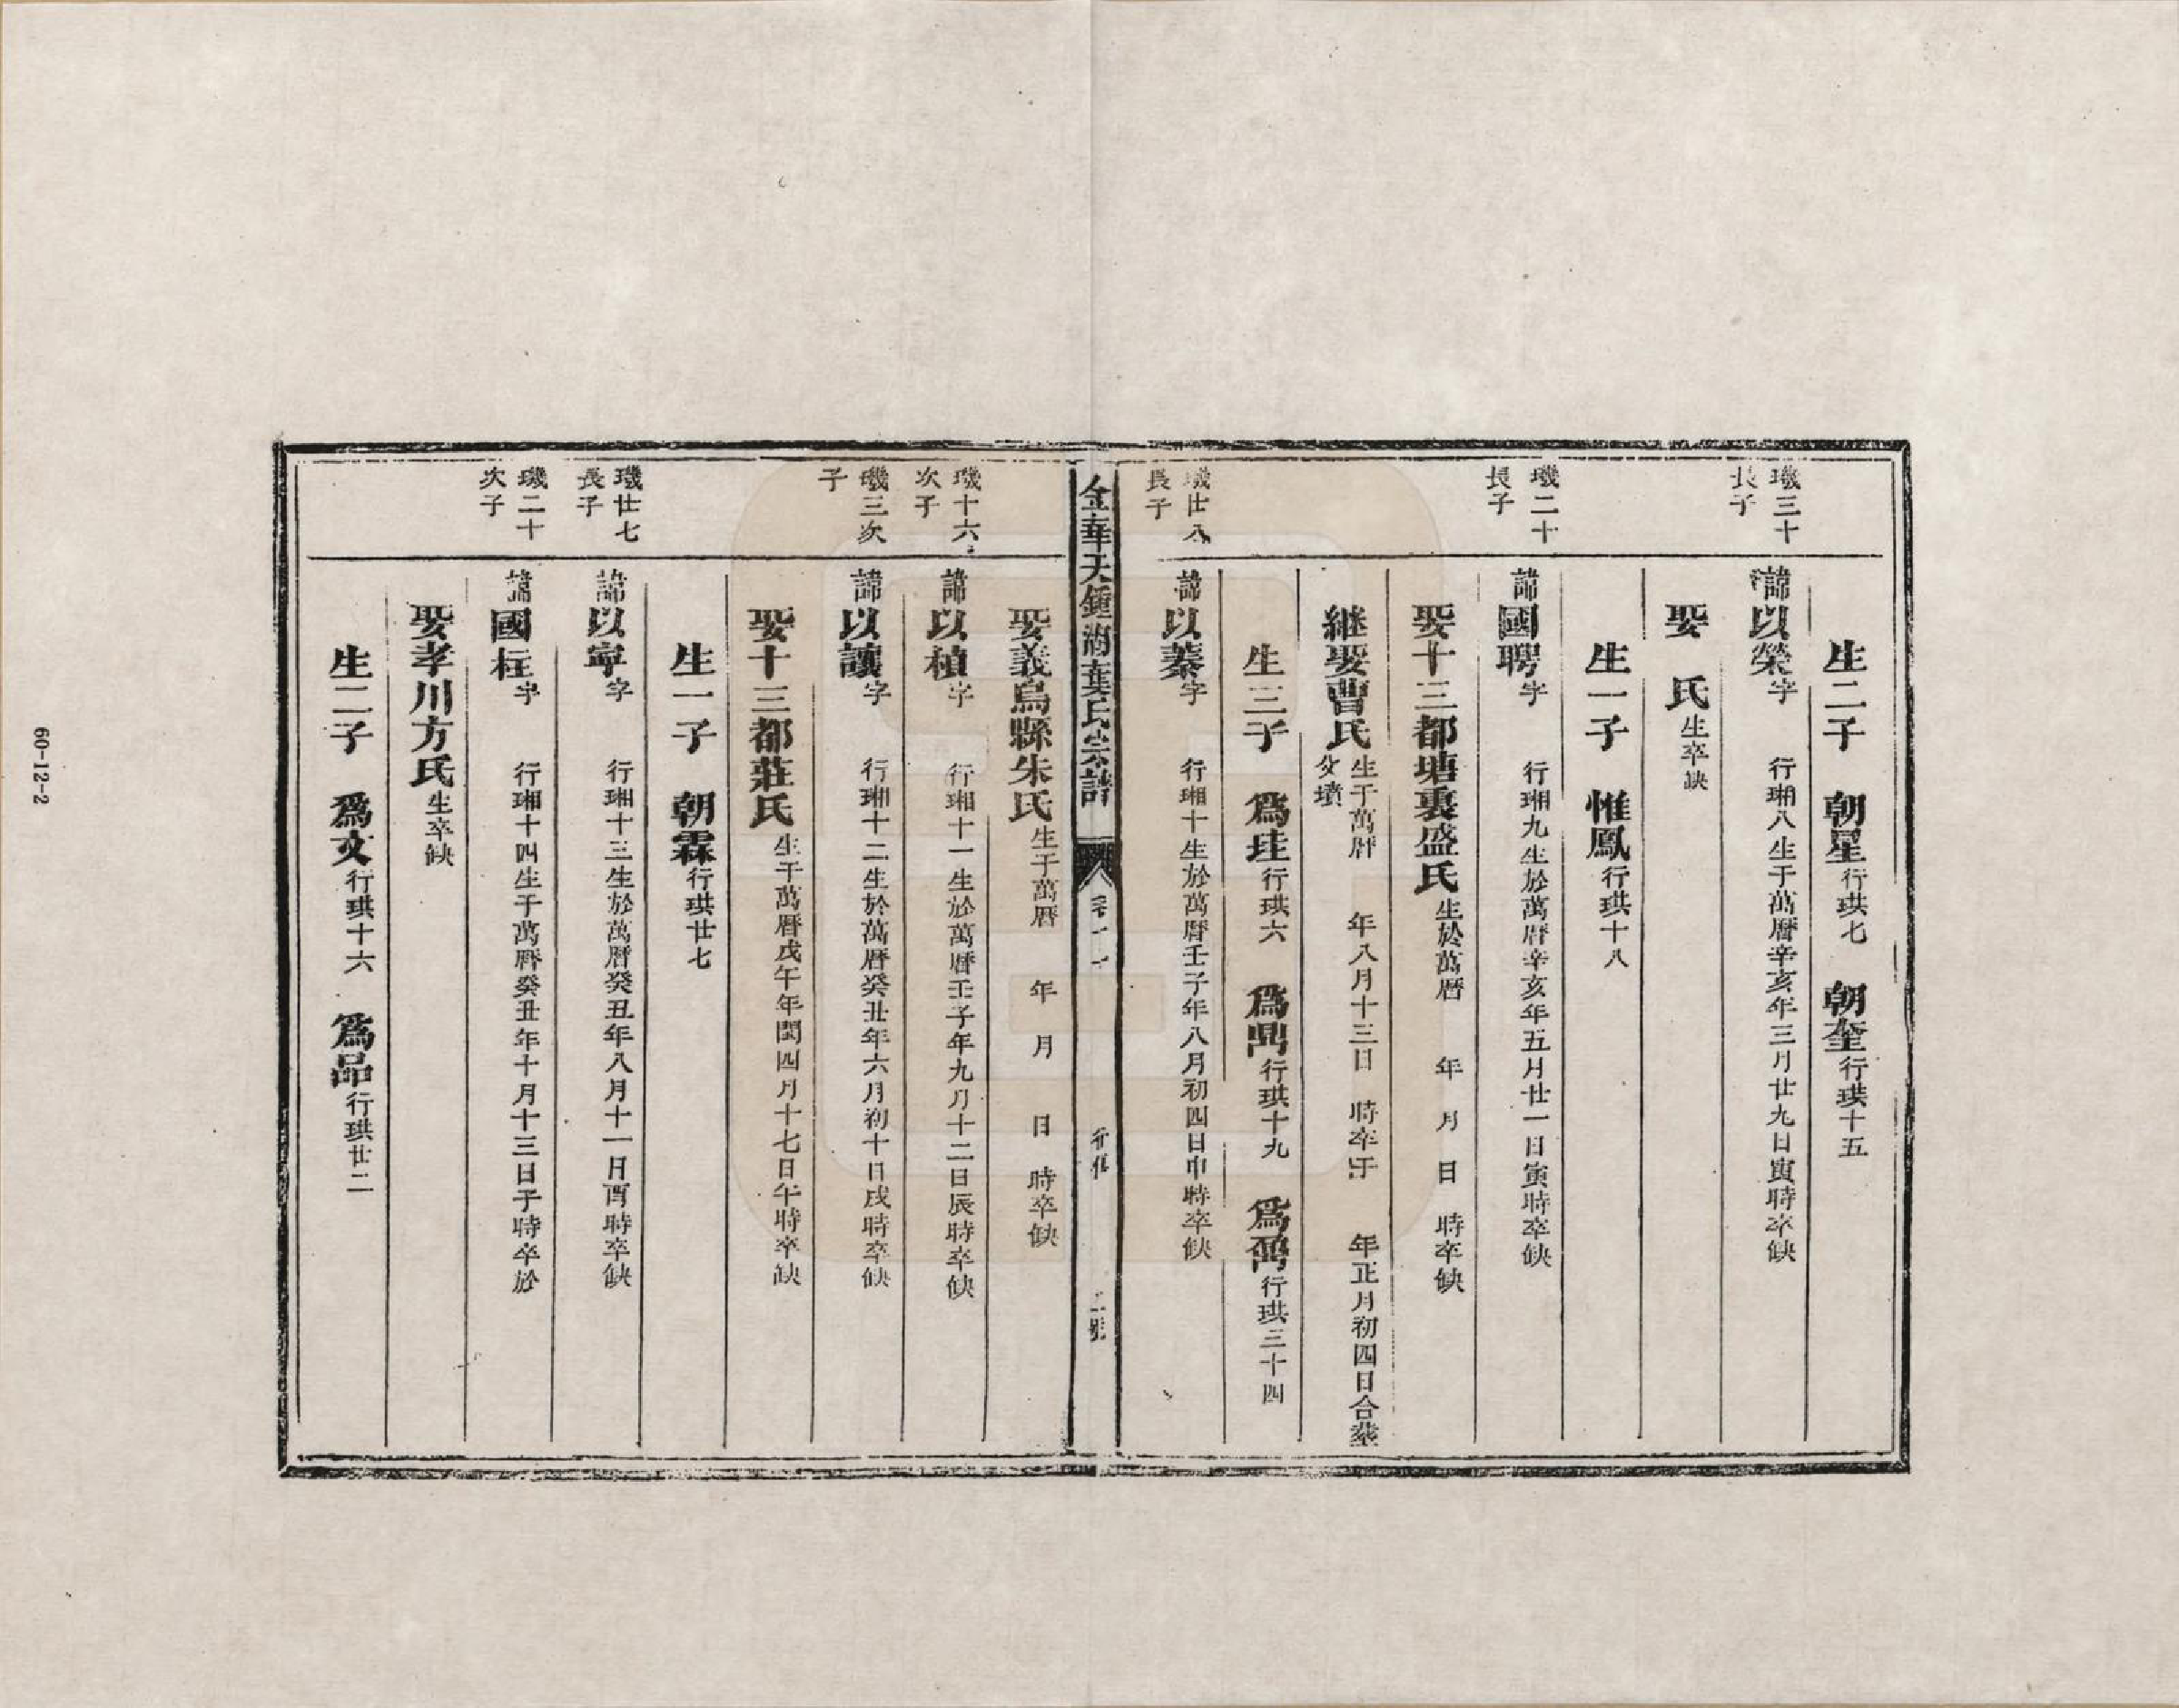 生二子　朝星行珙七　朝奎行珙十五
璣三十長子
諱以榮字　行瑚八生于萬曆辛亥年三月廿九日寅時卒缺
娶　氏生卒缺
生一子　惟鳳行珙十八
璣二十長子
諱國聘字　行瑚九生於萬曆辛亥年五月廿一日寅時卒缺
娶十三都塘裏盛氏生於萬曆　年　月　日　時卒缺
継娶曹氏生于萬曆　年八月十三日　時卒于　年正月初四日合塟父墳
生三子　為珪行珙六　為鼎行珙十九　為鼐行珙三十四
璣廿八長子
諱以蓁字　行瑚十生於萬曆壬子年八月初四日申時卒缺
金華天鍾湖葉氏宗譜　卷十　行傳　二號
娶義烏縣朱氏生于萬曆　年　月　日　時卒缺
璣十六次子
諱以楨字　行瑚十一生於萬曆壬子年九月十二日辰時卒缺
璣三次子
諱以讓字　行瑚十二生於萬曆癸丑年六月初十日戌時卒缺
娶十三都莊氏生于萬曆戊午年閏四月十七日午時卒缺
生一子　朝霖行珙廿七
璣廿七長子
諱以寜字　行瑚十三生於萬曆癸丑年八月十一日酉時卒缺
璣二十次子
諱國柱字　行瑚十四生于萬曆癸丑年十月十三日子時卒於
娶孝川方氏生卒缺
生二子　為文行珙十六　為品行珙廿二
60-12-2